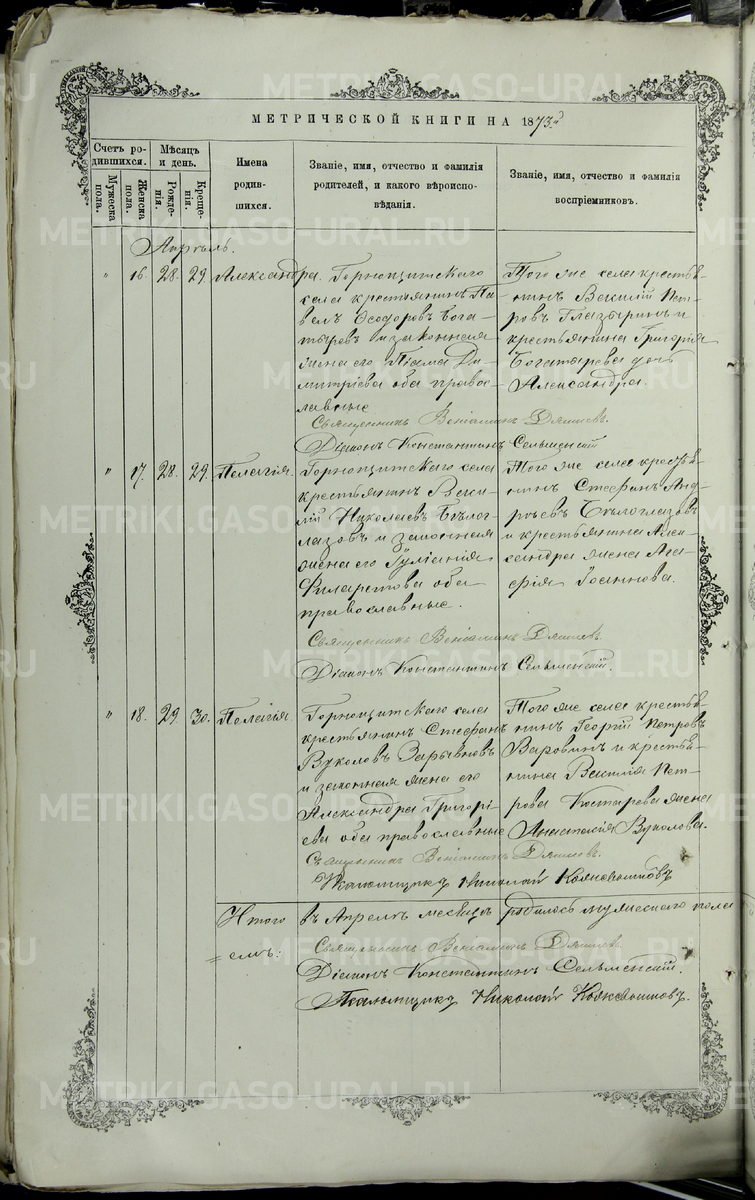 МЕТРИЧЕСКОЙ КНИГИ НА 1873й
Счетъ ро-
дившихся.
Мужеска
пола.
Женска
пола.
Мѣсяцъ
и день.
Рожде-
нія.
Креще-
нія.
Имена
родив-
шихся.
Званіе, имя, отчество и фамилія
родителей, и какого вѣроиспо-
вѣданія.
Званіе, имя, отчество и фамилія
воспріемниковъ.
Апрѣль.
" 16. 28. 29. Александра.
Горнощитскаго
села крестьянинъ Па-
велъ Ѳеодоровъ Бога-
тыревъ и законная
жена его Ди-
митріева оба правос-
лавные
Того же села крестья-
нинъ Василій Пет-
ровъ Глазыринъ и
крестьянина Григорія
Богатырева дочь
Александра.
Священникъ Веніаминъ
Діаконъ Константинъ Сельменскій
" 17. 28. 29. Пелагія.
Горнощитскаго села
крестьянинъ Васи-
лій Николаевъ Бѣлог-
лазовъ и законная
жена его Іуліанія
Филаретова оба
православные.
Того же села крестья-
нинъ Стефанъ Анд-
реевъ Бѣлоглазовъ
и крестьянина Алек-
сандра жена Ага-
фія Іоаннова.
Священникъ Веніаминъ
Діаконъ Константинъ Сельменскій.
" 18. 29 30. Пелагія.
Горнощитскаго села
крестьянинъ Стефанъ
Вуколовъ Зарывновъ
и законная жена его
Александра Григорі-
ева оба православные
Того же села крестья-
нинъ Георгій Петровъ
Варовинъ и крестья-
нина Василія Пет-
рова Костарева жена
Анастасія Вуколова.
Священникъ Веніаминъ
Псаломщикъ Николай
Итого въ Апрелѣ месяцѣ родилось мужескаго пола
Священникъ Веніаминъ
Діаконъ Константинъ Сельменскій.
Псаломщикъ Николай
METRIKI.GASO-URAL.RU